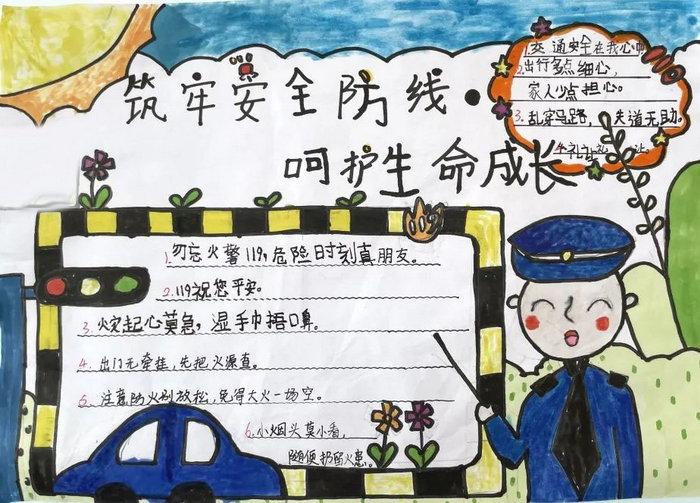 筑牢安全防线·
呵护生命成长
1.交通安全在我心中
2.出行多点细心,
家人少点担心。
3.乱穿马路,失道无助。
4.礼让礼让。
1.勿忘火警119,危险时刻真朋友。
2.119祝您平安。
3.火灾起心莫急,湿手巾捂口鼻。
4.出门无牵挂,先把火源查。
5.注意防火别放松,免得大火一场空。
6.小烟头莫小看,
随便扔留火患。